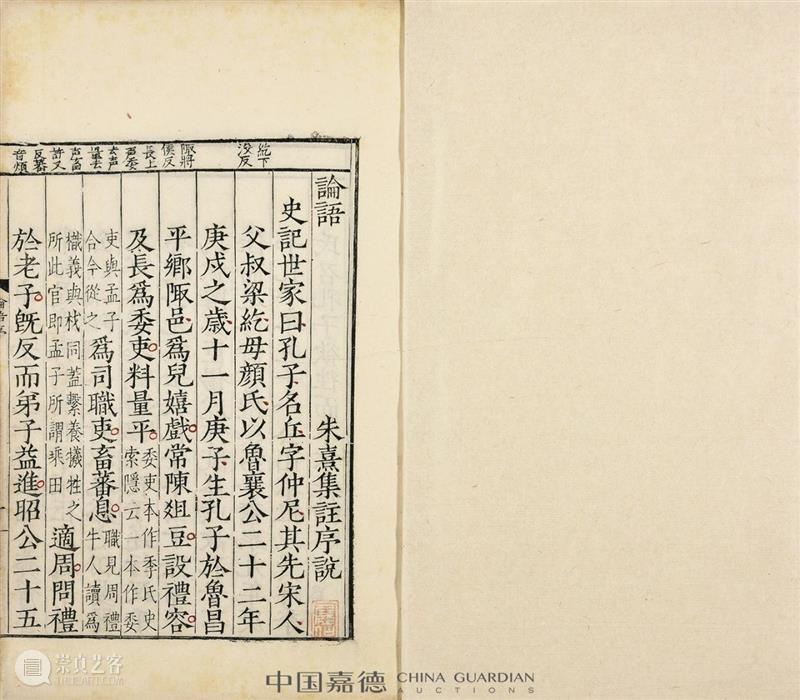 紇下
没反
陬將
侯反
長上
声委
去声
量去
声畜
許又
反蕃
音煩
論語 朱熹集註序說
史記世家曰孔子名丘字仲尼其先宋人
父叔梁紇母顏氏以魯襄公二十二年
庚戌之歲十一月庚子生孔子於魯昌
平鄉陬邑爲兒嬉戲常陳爼豆設禮容
及長爲委吏料量平委吏本作季氏史索隱云一本作委
吏與孟子合今從之爲司職吏畜蕃息職見周禮牛人讀爲
樴義與杙同蓋繫養犧牲之所此官即孟子所謂乗田適周問禮
於老子既反而弟子益進昭公二十五
崇真艺客
中国嘉德 CHINA GUARDIAN
AUCTIONS